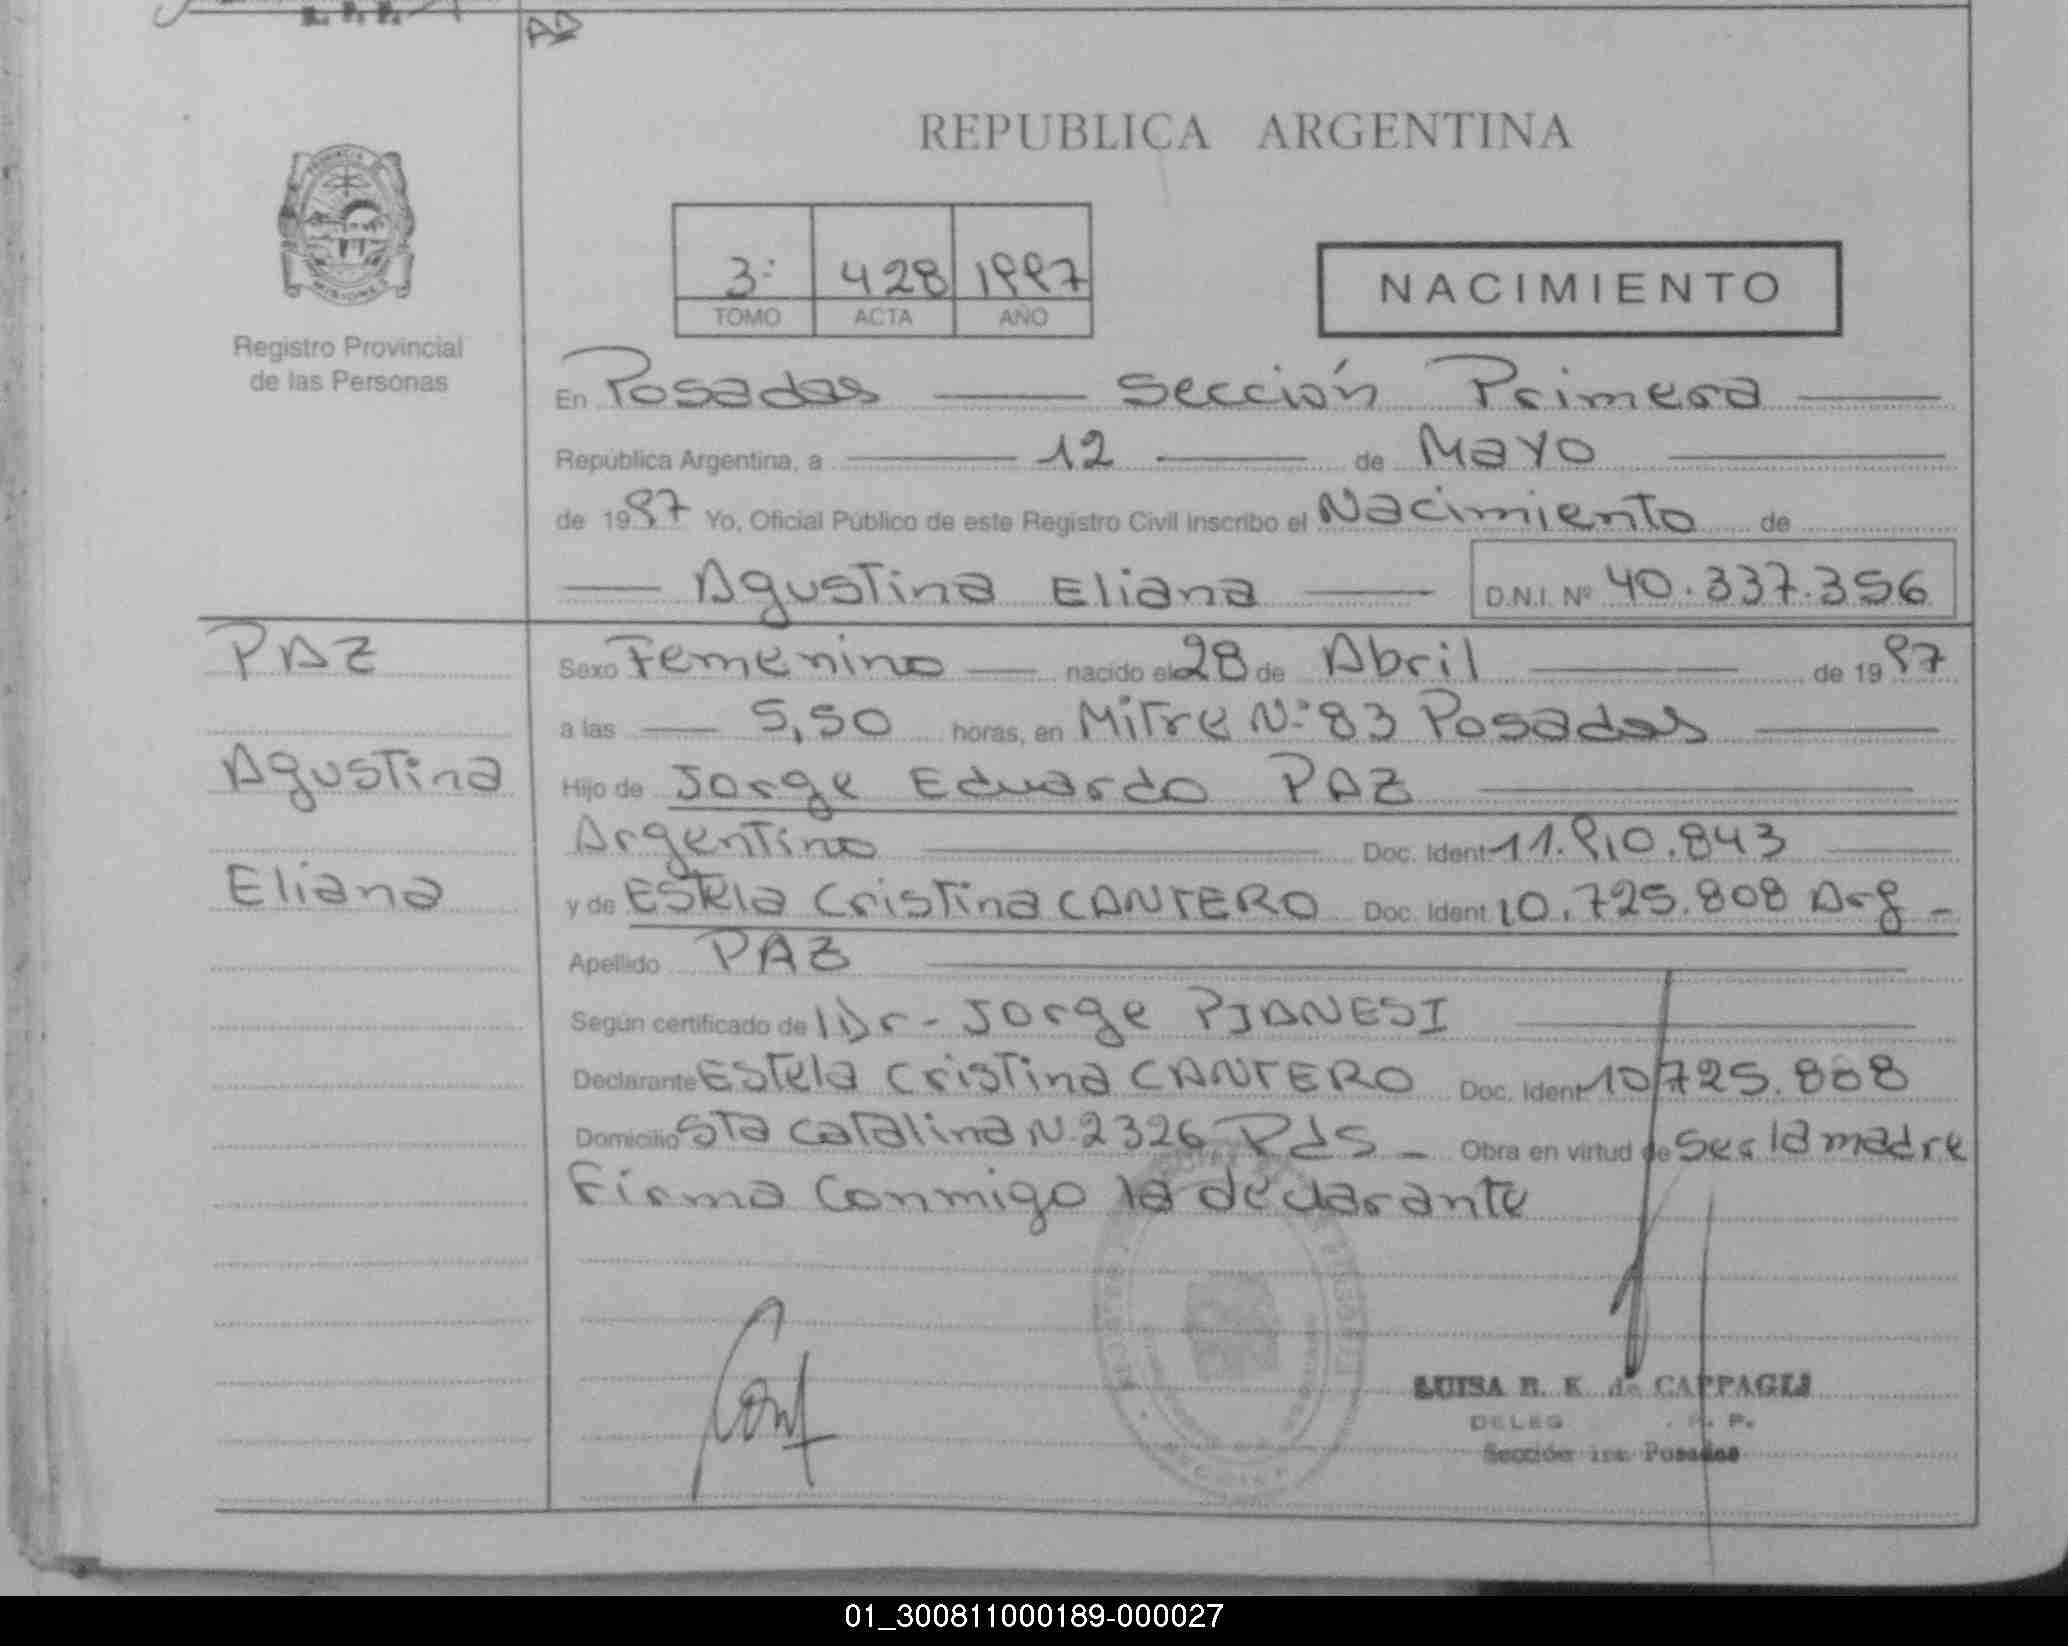 AD
REPUBLICA ARGENTINA
MISIONES
Registro Provincial
de las Personas
3º 428 1997
TOMO ACTA AÑO
NACIMIENTO
En Posadas Sección Primera
República Argentina, a 12 de Mayo
de 1997 Yo, Oficial Público de este Registro Civil inscribo el Nacimiento de
Agustina Eliana D.N.I. Nº 40.337.356
PAZ
Agustina
Eliana
Sexo Femenino nacido el 28 de Abril de 1997
a las 5,50 horas, en Mitre Nº 83 Posadas
Hijo de Jorge Eduardo PAZ
Argentino Doc. Ident 11.910.843
y de Estela Cristina CANTERO Doc. Ident 10.725.808 Arg -
Apellido PAZ
Según certificado de Dr - Jorge PIANESI
Declarante Estela Cristina CANTERO Doc. Ident 10725.808
Domicilio Sta Catalina N 2326 Pds - Obra en virtud de Ser la madre
Firma Conmigo la declarante
LUISA R. K. de CAPPAGLI
DELEG R. P.
Sección 1ra Posadas
01_300811000189-000027